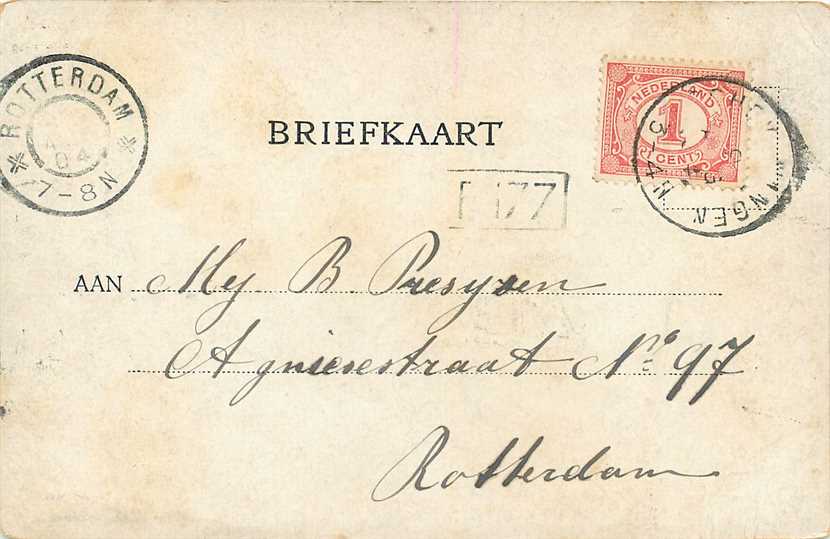 ROTTERDAM
04
7-8 N
BRIEFKAART
NEDERLAND
1
CENT
3-4 N
177
AAN Mej B. Presyzen
Agniesestraat No 97
Rotterdam